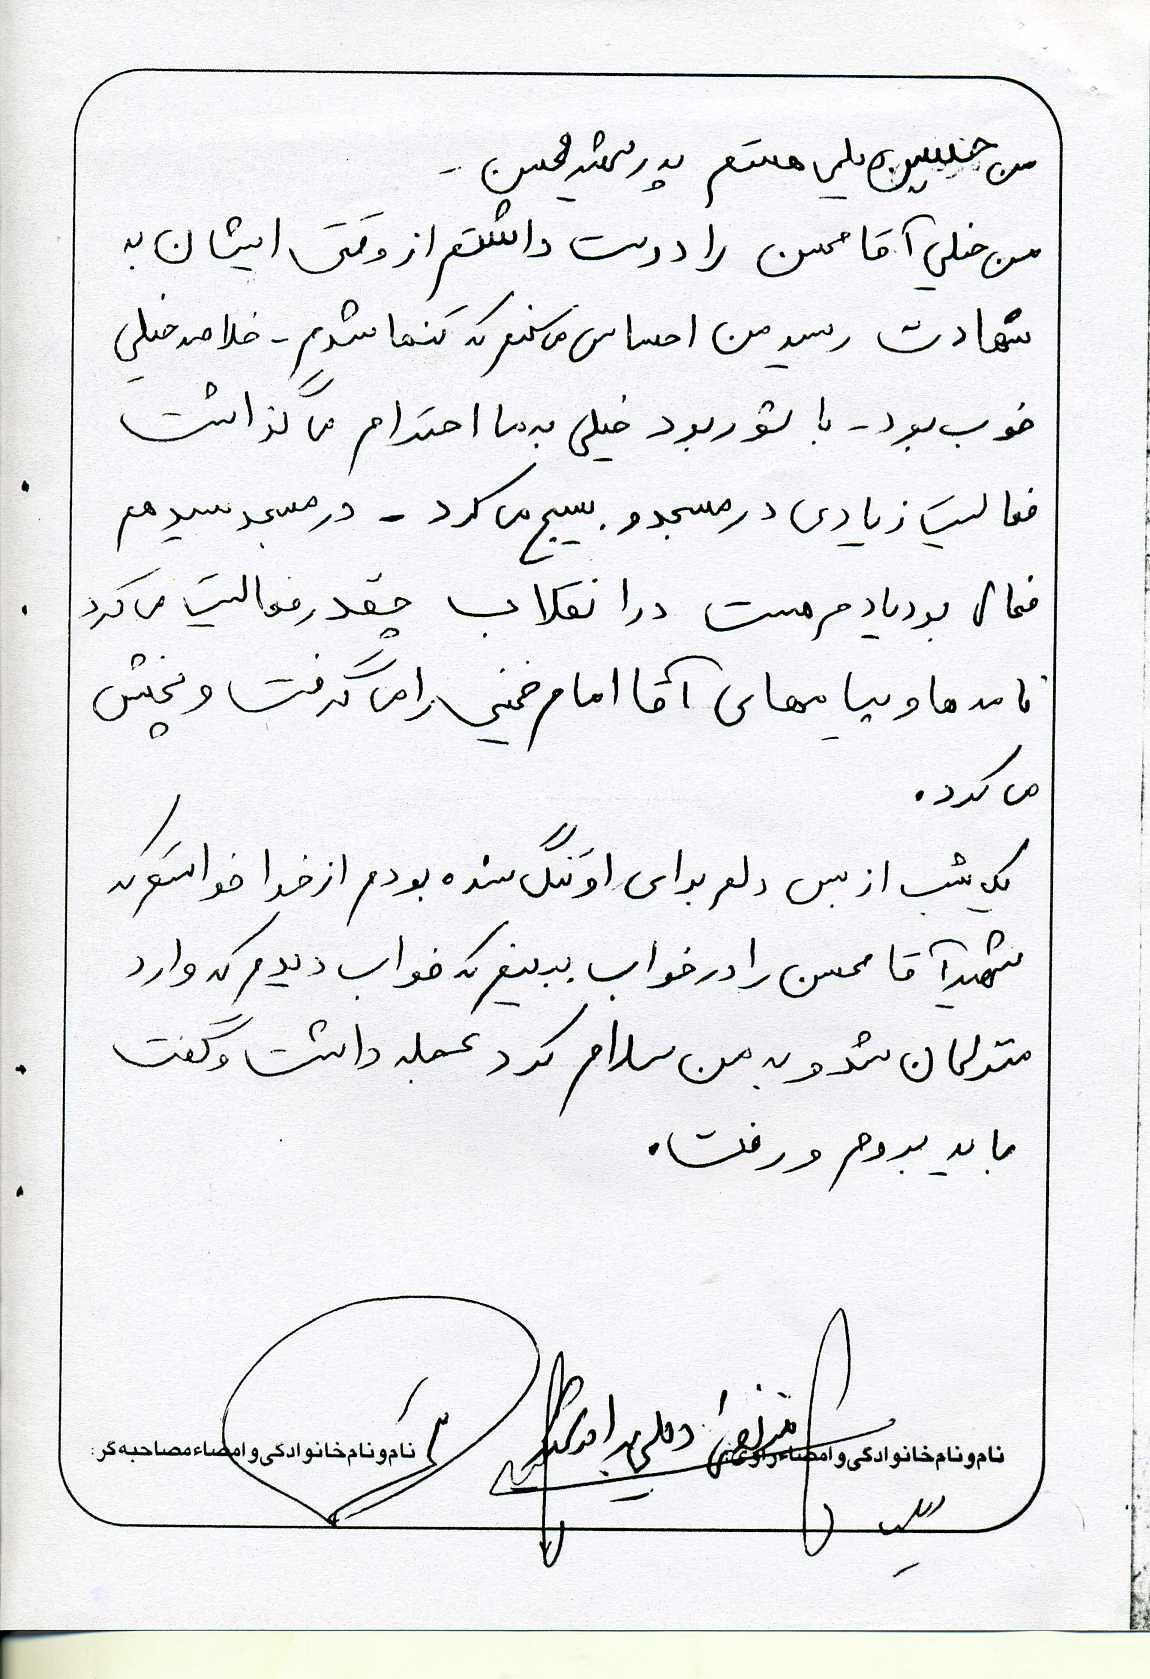 من حسین هستم پدر شهید محسن -
من خیلی آقا محسن را دوست داشتم از وقتی ایشان به
شهادت رسید من احساس می‌کنم که تنها شدم - خلاصه خیلی
خوب بود - با شور بود خیلی به ما احترام می‌گذاشت
فعالیت زیادی در مسجد و بسیج می‌کرد - در مسجد سید هم
فعال بود یادم هست در انقلاب چقدر فعالیت می‌کرد
نامه‌ها و پیامهای آقا امام خمینی را می‌گرفت و پخش
می‌کرد.
یک شب از بس دلم برای او تنگ شده بود از خدا خواستم که
شهید آقا محسن را در خواب ببینم که خواب دیدم که وارد
منزلمان شد و به من سلام کرد عجله داشت و گفت
باید بروم و رفت.
نام و نام خانوادگی و امضاء راوی:
نام و نام خانوادگی و امضاء مصاحبه‌گر: